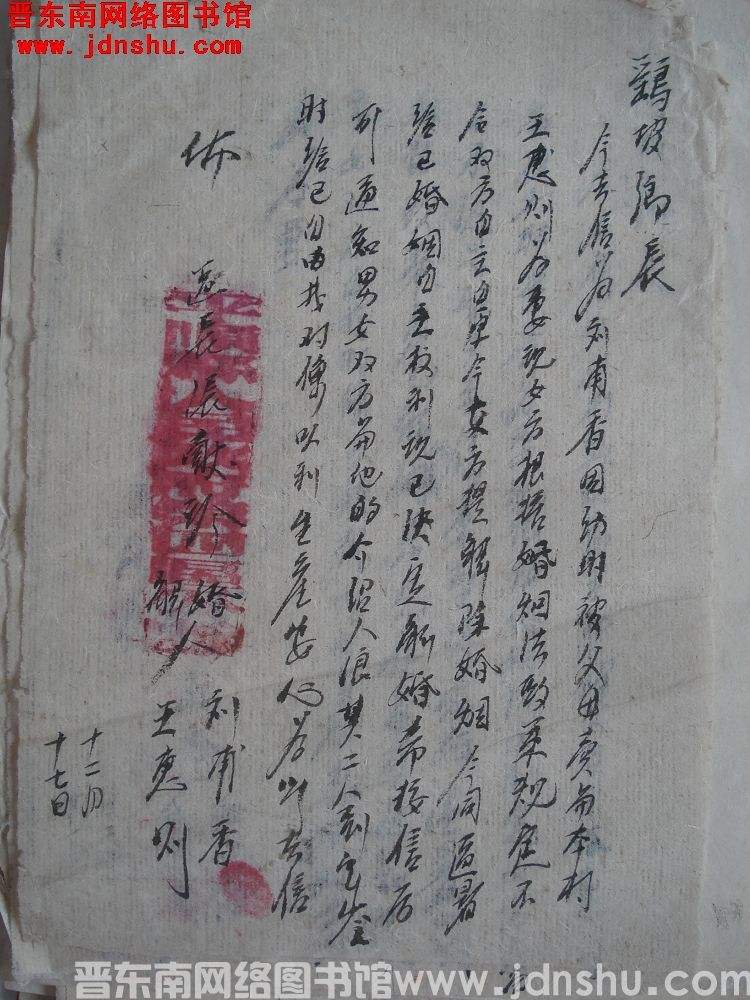 晋东南网络图书馆
www.jdnshu.com
鸡坡乡长
今去信为刘甫香因幼时被父母卖给本村
王惠则为妻现女方根据婚姻法政策规定不
合双方自主自愿今女方提解除婚姻今向区署
给已婚姻自主权利现已决定解婚希接信后
即通知男女双方给他的介绍人浪其二人到它鉴
时给已自由找对像以利生产安心为此去信
佈
区长张献珍
解婚人
刘甫香
王惠则
十二月
十七日
晋东南网络图书馆www.jdnshu.com